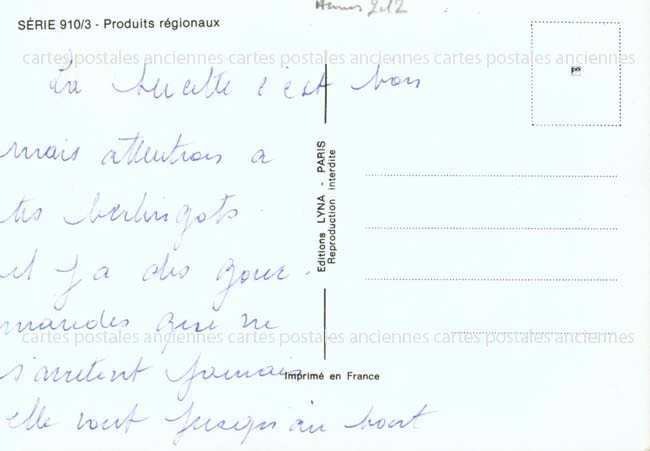 SÉRIE 910/3 - Produits régionaux
cartes postales anciennes cartes postales anciennes cartes postales anciennes
La sucette c'est bon
mais attention a
tes berlingots.
il y a des gour-
mandes que ne
cartes postales anciennes cartes postales anciennes cartes postales anciennes
s'arretent jamais
elle vont jusqu'au bout
Editions LYNA - PARIS
Reproduction interdite
Imprimé en France